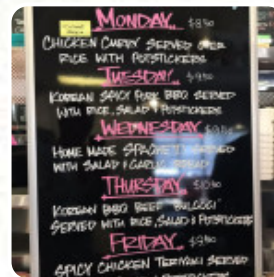 MONDAY
CHICKEN CURRY SERVED OVER
RICE WITH POTSTICKERS
TUESDAY
KOREAN SPICY PORK BBQ SERVED
WITH RICE, SALAD & POTSTICKERS
WEDNESDAY
HOME MADE SPAGHETTI SERVED
WITH SALAD & GARLIC BREAD
THURSDAY
KOREAN BBQ BEEF BULGOGI
SERVED WITH RICE, SALAD & POTSTICKERS
FRIDAY
SPICY CHICKEN TERIYAKI SERVED